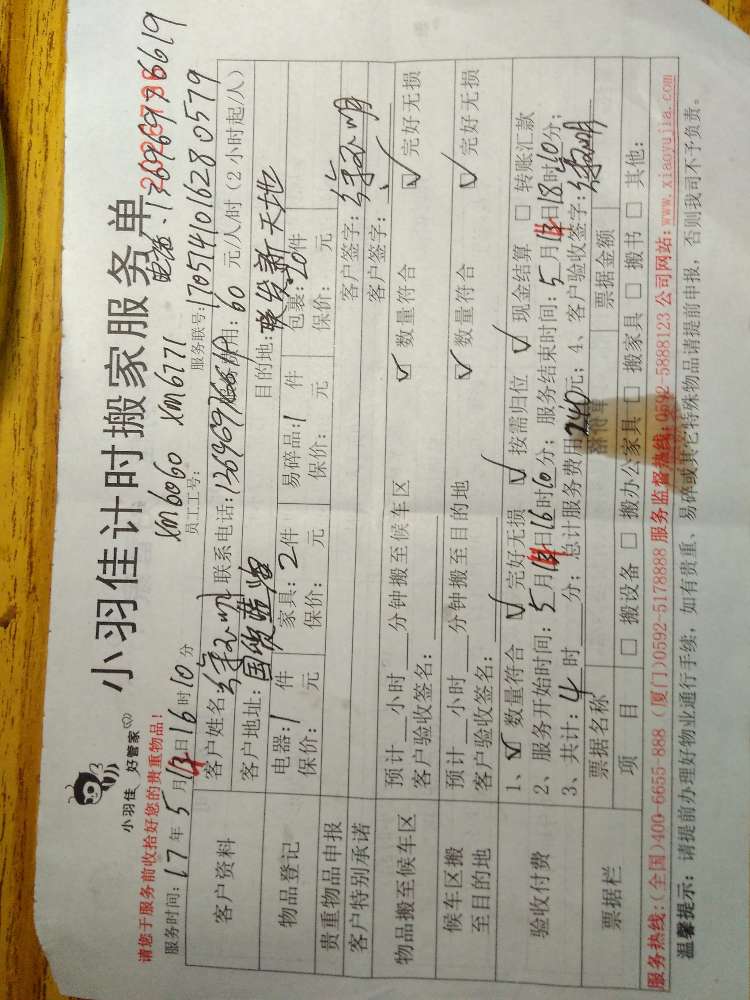 小羽佳 好管家
小羽佳计时搬家服务单
请您于服务前收拾好您的贵重物品！
服务时间：17年5月 日16时10分
员工工号：xm6060 xm6771
电话：
服务联号：1705141016280579
客户资料
客户姓名： 联系电话： 费用：60 元/人/时（2小时起/人）
客户地址：国贸蓝海 目的地： 新天地
物品登记
电器：1件 家具：2件 易碎品：1件 包裹：20件
保价： 元 保价： 元 保价： 元 保价： 元
贵重物品申报 客户签字：
客户特别承诺 客户签字：
物品搬至候车区
预计__小时__分钟搬至候车区 ☑ 数量符合 ☑ 完好无损
客户验收签名：
候车区搬至目的地
预计__小时__分钟搬至目的地 ☑ 数量符合 ☑ 完好无损
客户验收签名：
验收付费
1、☑ 数量符合 ☑ 完好无损 ☑ 按需归位 ☑ 现金结算 □ 转账汇款
2、服务开始时间：5月 日16时10分；服务结束时间：5月 日18时10分；
3、共计：4时 分；总计服务费用240元；4、客户验收签字：
票据栏
票据名称 票据金额
项目 □ 搬设备 □ 搬办公家具 □ 搬家具 □ 搬书 □ 其他：
服务热线：（全国）400-6655-888（厦门）0592-5178888 服务监督热线：0592-5888123 公司网站：www.xiaoyujia.com
温馨提示：请提前办理好物业通行手续，如有贵重、易碎或其它特殊物品请提前申报，否则我司不予负责。